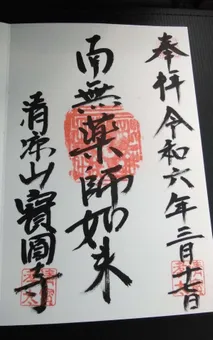 奉拝 令和六年三月十七日
南無薬師如来
清涼山寶圓寺